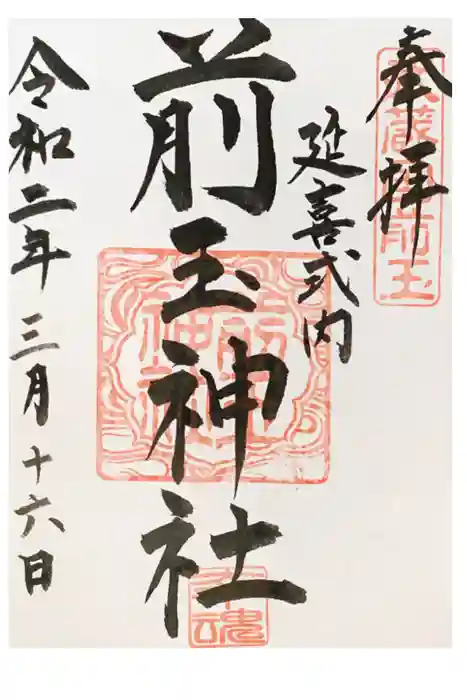 奉拝
延喜式内
前玉神社
令和二年三月十六日